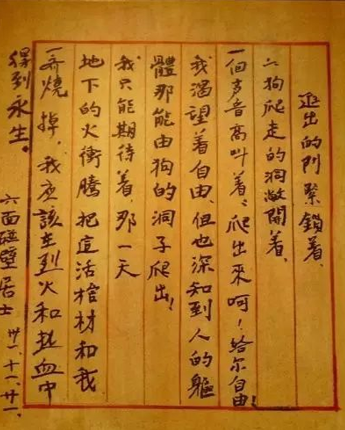 出的門緊鎖着、
狗爬走的洞敞開着、
一個声音高叫着、爬出來呵！給尔自由！
我渴望着自由、但也深知到人的軀
體那能由狗的洞子爬出！
我只能期待着、那一天
地下的火衝騰把這活棺材和我
一齊燒掉，我應該在烈火和热血中
得到永生。
六面碰壁居士 卅一、十一、廿一.